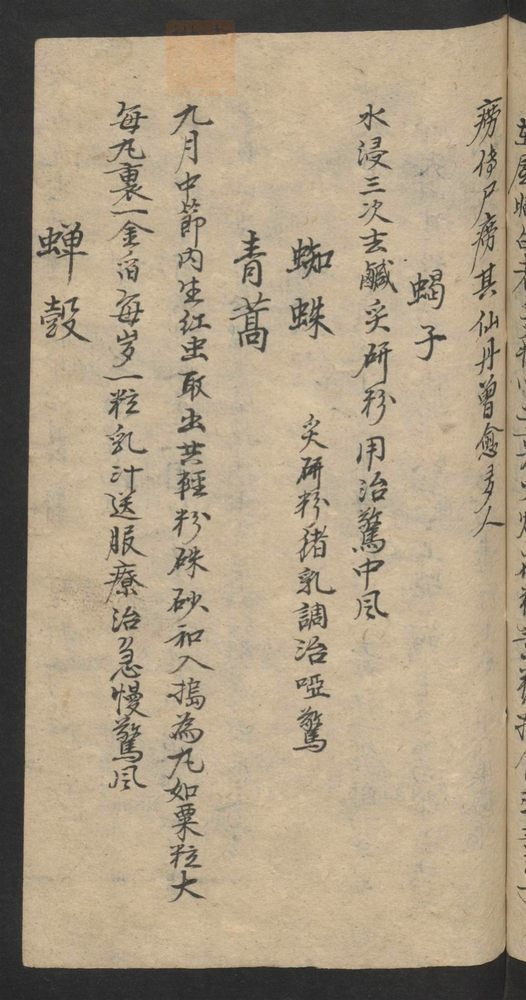 癆傳尸癆其仙丹曾愈多人
蝎子
水浸三次去鹹炙研粉用治驚中风
蜘蛛
炙研粉豬乳調治啞驚
青蒿
九月中節內生红虫取出共輕粉硃砂和入搗為丸如粟粒大
每丸裹一金泊每岁一粒乳汁送服療治急慢驚风
蝉殼